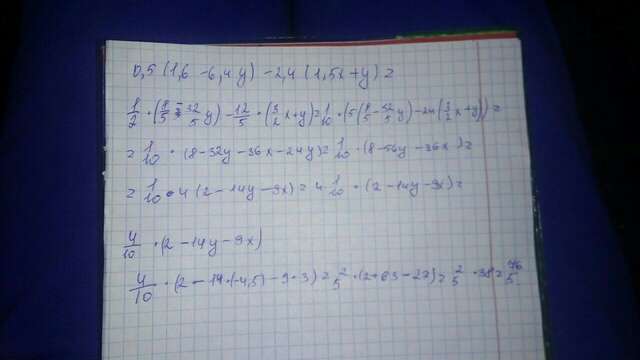 0,5 (1,6 - 6,4y) - 2,4 (1,5x + y) =
1/2 · (8/5 - 32/5 y) - 12/5 · (3/2 x + y) = 1/10 · (5(8/5 - 32/5 y) - 24(3/2 x + y)) =
= 1/10 · (8 - 32y - 36x - 24y) = 1/10 · (8 - 56y - 36x) =
= 1/10 · 4 (2 - 14y - 9x) = 4 · 1/10 · (2 - 14y - 9x) =
4/10 · (2 - 14y - 9x)
4/10 · (2 - 14 · (-4,5) - 9 · 3) = 2/5 · (2 + 63 - 27) = 2/5 · 38 = 76/5